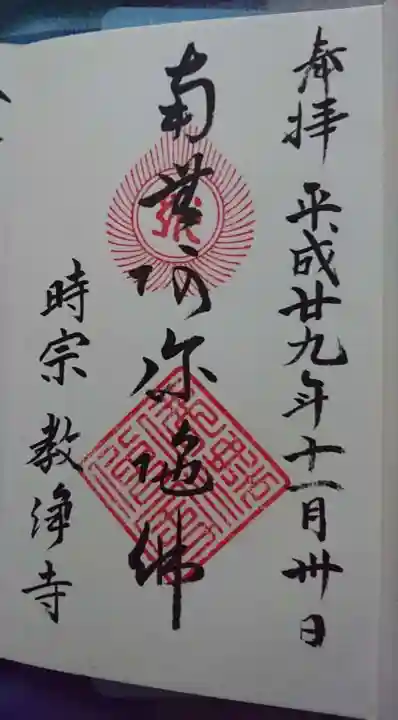 奉拝 平成廿九年十一月卅日
南無阿弥陀佛
時宗 教浄寺